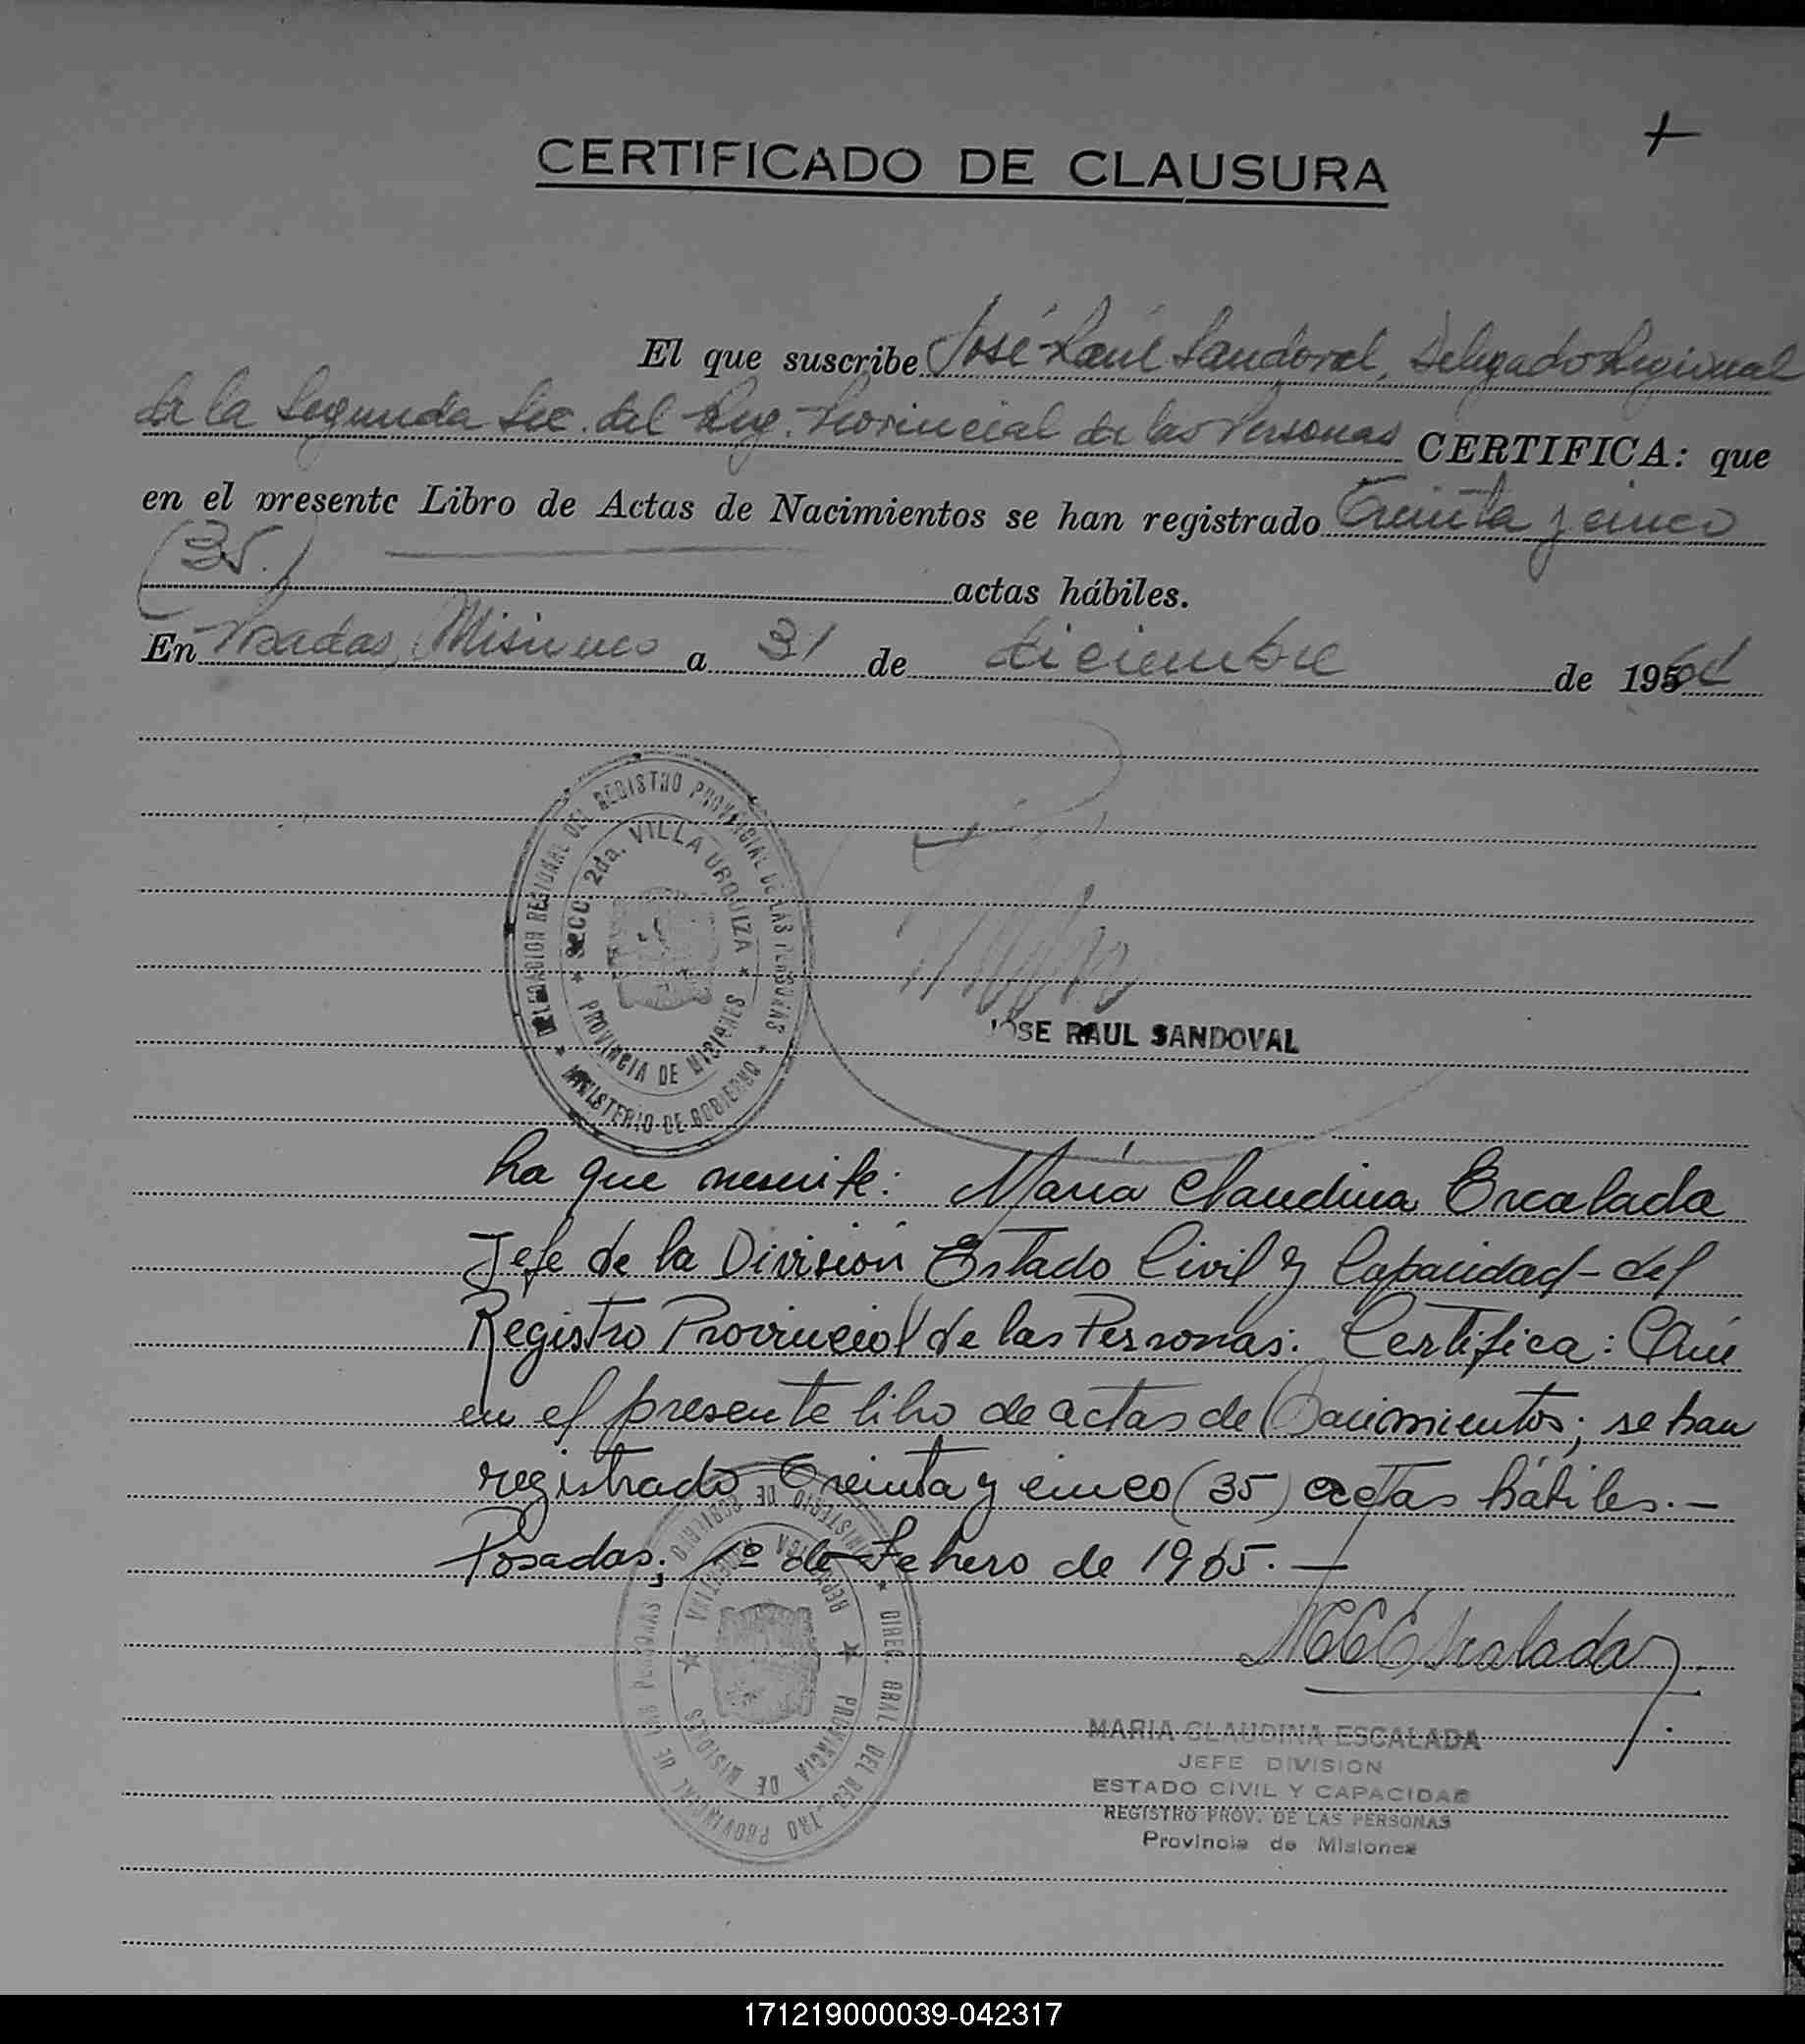 +
CERTIFICADO DE CLAUSURA
El que suscribe José Raúl Sandoval, Delegado Regional
de la Segunda Sec. del Reg. Provincial de las Personas CERTIFICA: que
en el presente Libro de Actas de Nacimientos se han registrado Treinta y cinco
(35.) actas hábiles.
En Posadas, Misiones a 31 de diciembre de 1964
DELEGACION REGIONAL DEL REGISTRO PROVINCIAL DE LAS PERSONAS
SECC. 2da. VILLA URQUIZA
PROVINCIA DE MISIONES
MINISTERIO DE GOBIERNO
JOSE RAUL SANDOVAL
La que suscribe: María Claudina Escalada
Jefe de la División Estado Civil y Capacidad - del
Registro Provincial de las Personas. Certifica: Que
en el presente libro de actas de Nacimientos; se han
registrado Treinta y cinco (35) actas hábiles. —
Posadas; 1º de Febrero de 1965. —
MCEscalada
DIREC. GRAL. DEL REGISTRO PROVINCIAL DE LAS PERSONAS
MINISTERIO DE GOBIERNO
REPUBLICA ARGENTINA
PROVINCIA DE MISIONES
MARIA CLAUDINA ESCALADA
JEFE DIVISION
ESTADO CIVIL Y CAPACIDAD
REGISTRO PROV. DE LAS PERSONAS
Provincia de Misiones
171219000039-042317